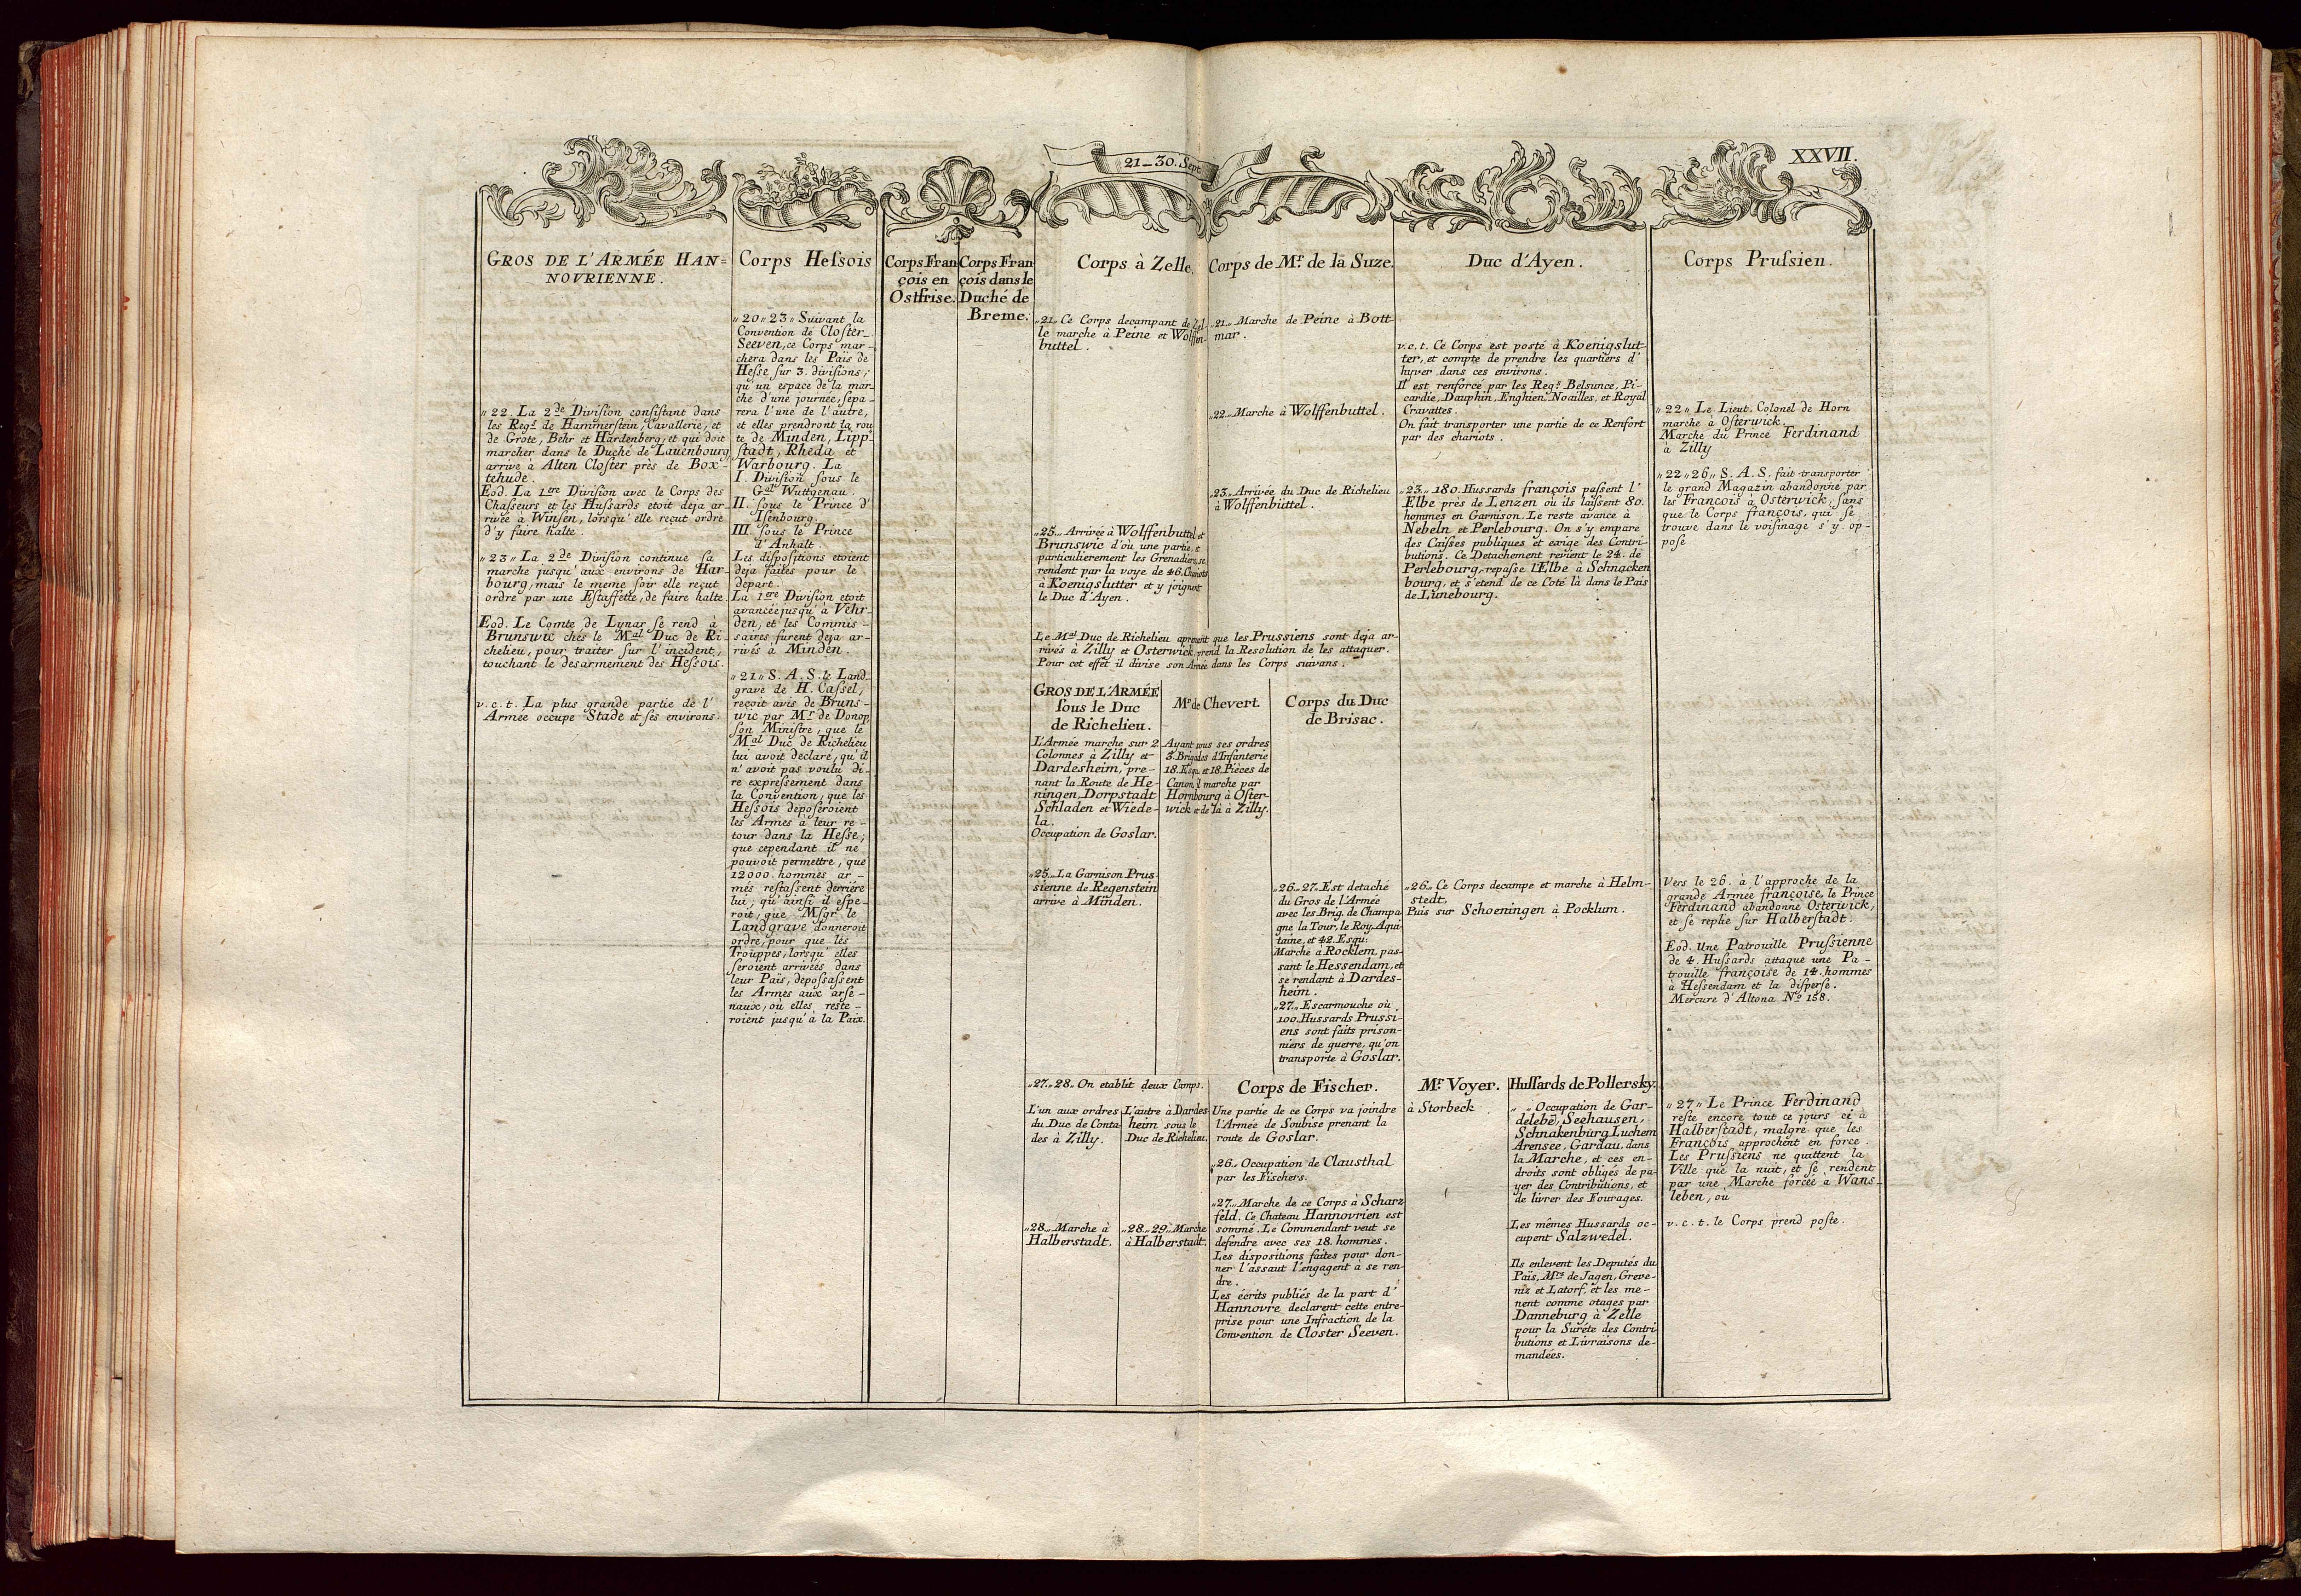 21–30. Sept.
XXVII.
GROS DE L'ARMÉE HAN=
NOVRIENNE.
„22. La 2de Division consistant dans
les Regs. de Hammerstein, Cavallerie, et
de Grote, Behr et Hardenberg, et qui doit
marcher dans le Duché de Lauenbourg,
arrive à Alten Closter près de Box-
tehude.
Eod. La 1ere Division avec le Corps des
Chasseurs et les Hussards etoit deja ar-
rivée à Winsen, lorsqu'elle reçut ordre
d'y faire halte.
„23„ La 2de Division continue sa
marche jusqu'aux environs de Har-
bourg, mais le meme soir elle reçut
ordre par une Estaffette, de faire halte.
Eod. Le Comte de Lynar se rend à
Brunswic chés le Mal Duc de Ri-
chelieu, pour traiter sur l'incident,
touchant le desarmement des Hessois.
v.c.t. La plus grande partie de l'
Armée occupe Stade et ses environs.
Corps Hessois
„20„23„ Suivant la
Convention de Closter
Seeven, ce Corps mar-
chera dans les Païs de
Hesse sur 3. divisions;
qu'un espace de la mar-
che d'une journée, sépa-
rera l'une de l'autre,
et elles prendront la rou
te de Minden, Lipp-
stadt, Rheda et
Warbourg. La
I. Division sous le
Gal Wuttgenau.
II. sous le Prince d'
Isenbourg.
III. sous le Prince
d'Anhalt.
Les dispositions etoient
deja faites pour le
depart.
La 1ere Division etoit
avancée jusqu'à Vehr-
den, et les Commis-
saires furent deja ar-
rivés à Minden.
„21„ S. A. S. le Land
grave de H. Cassel,
reçoit avis de Bruns-
wic par Mr. de Donop
son Ministre, que le
Mal Duc de Richelieu
lui avoit declaré, qu'il
n'avoit pas voulu di-
re expressement dans
la Convention, que les
Hessois deposeroient
les Armes à leur re-
tour dans la Hesse;
que cependant il ne
pouvoit permettre, que
12000. hommes ar-
més restassent derriére
lui; qu'ainsi il espe-
roit, que Msgr. le
Landgrave donneroit
ordre, pour que les
Trouppes, lorsqu'elles
seroient arrivées dans
leur Païs, depossassent
les Armes aux arse-
naux, où elles reste-
roient jusqu'à la Paix.
Corps Fran
çois en
Ostfrise.
Corps Fran
çois dans le
Duché de
Breme.
Corps à Zelle.
„21„ Ce Corps decampant de Zel-
le marche à Peine et Wolffen-
buttel.
„25„ Arrivée à Wolffenbuttel et
Brunswic d'où une partie, e
particulierement les Grenadiers, se
rendent par la voye de 46. Chariots
à Koenigslutter et y joignent
le Duc d'Ayen.
Corps de Mr. de la Suze.
„21„ Marche de Peine à Bott-
mar.
„22„ Marche à Wolffenbuttel.
„23„ Arrivée du Duc de Richelieu
à Wolffenbuttel.
Le Mal Duc de Richelieu aprenant que les Prussiens sont deja ar-
rivés à Zilly et Osterwick prend la Resolution de les attaquer.
Pour cet effet il divise son Armée dans les Corps suivans.
GROS DE L'ARMÉE
sous le Duc
de Richelieu.
L'Armée marche sur 2
Colonnes à Zilly et
Dardesheim, pre-
nant la Route de He-
ningen, Dorpstadt
Schladen et Wiede-
la.
Occupation de Goslar.
„25„ La Garnison Prus-
sienne de Regenstein
arrive à Minden.
Mr de Chevert
Ayant sous ses ordres
3. Brigades d'Infanterie
18. Esqu. et 18. Pièces de
Canon, il marche par
Hornbourg à Oster-
wick et de là à Zilly.
Corps du Duc
de Brisac.
„26„27„ Est detaché
du Gros de l'Armée
avec les Brig. de Champa
gne la Tour, le Roy, Aqui-
taine, et 42. Esqu:
Marche à Rocklem, pas-
sant le Hessendam, et
se rendant à Dardes-
heim.
„27„ Escarmouche où
100. Hussards Prussi-
ens sont faits prison-
niers de guerre, qu'on
transporte à Goslar.
„27„28„ On etablit deux Camps.
L'un aux ordres
du Duc de Conta
des à Zilly.
„28„ Marche à
Halberstadt.
L'autre à Dardes
heim sous le
Duc de Richelieu.
„28„29„ Marche
à Halberstadt.
Corps de Fischer.
Une partie de ce Corps va joindre
l'Armée de Soubise prenant la
route de Goslar.
„26„ Occupation de Clausthal
par les Fischers.
„27„ Marche de ce Corps à Scharz
feld. Ce Chateau Hannovrien est
sommé. Le Commendant veut se
defendre avec ses 18. hommes.
Les dispositions faites pour don-
ner l'assaut l'engagent à se ren-
dre.
Les écrits publiés de la part d'
Hannovre declarent cette entre-
prise pour une Infraction de la
Convention de Closter Seeven.
Duc d'Ayen.
v.c.t. Ce Corps est posté à Koenigslut-
ter, et compte de prendre les quartiers d'
hyver dans ces environs.
Il est renforcé par les Regs. Belsunce, Pi-
cardie, Dauphin, Enghien, Noailles, et Royal
Cravattes.
On fait transporter une partie de ce Renfort
par des chariots.
„23„ 180. Hussards françois passent l'
Elbe près de Lenzen où ils laissent 80.
hommes en Garnison. Le reste avance à
Nebeln et Perlebourg. On s'y empare
des Caisses publiques et exige des Contri-
butions. Ce Detachement revient le 24. de
Perlebourg, repasse l'Elbe à Schnacken
bourg, et s'etend de ce Coté là dans le Païs
de Lünebourg.
„26„ Ce Corps decampe et marche à Helm-
stedt,
Puis sur Schoeningen à Pocklum.
Mr. Voyer.
à Storbeck
Hussards de Pollersky.
„ „ Occupation de Gar-
delebē, Seehausen,
Schnakenburg Luchem
Arensee, Gardau, dans
la Marche, et ces en-
droits sont obligés de pa-
yer des Contributions, et
de livrer des Fourages.
Les mêmes Hussards oc-
cupent Salzwedel.
Ils enlevent les Deputés du
Païs, Mrs de Jagen, Greve-
niz et Latorf, et les me-
nent comme otages par
Danneburg à Zelle
pour la Sureté des Contri
butions et Livraisons de-
mandées.
Corps Prussien.
„22„ Le Lieut. Colonel de Horn
marche à Osterwick.
Marche du Prince Ferdinand
à Zilly
„22„26„ S. A. S. fait transporter
le grand Magazin abandonné par
les François à Osterwick, sans
que le Corps françois, qui se
trouve dans le voisinage s'y op-
pose
Vers le 26. à l'approche de la
grande Armée françoise, le Prince
Ferdinand abandonne Osterwick,
et se replie sur Halberstadt.
Eod. Une Patrouille Prussienne
de 4. Hussards attaque une Pa-
trouille françoise de 14. hommes
à Hessendam et la disperse.
Mercure d'Altona No 158.
„27„ Le Prince Ferdinand
reste encore tout ce jours ci à
Halberstadt, malgre que les
François approchent en force.
Les Prussiens ne quittent la
Ville que la nuit, et se rendent
par une Marche forcée à Wans-
leben, où
v.c.t. le Corps prend poste.